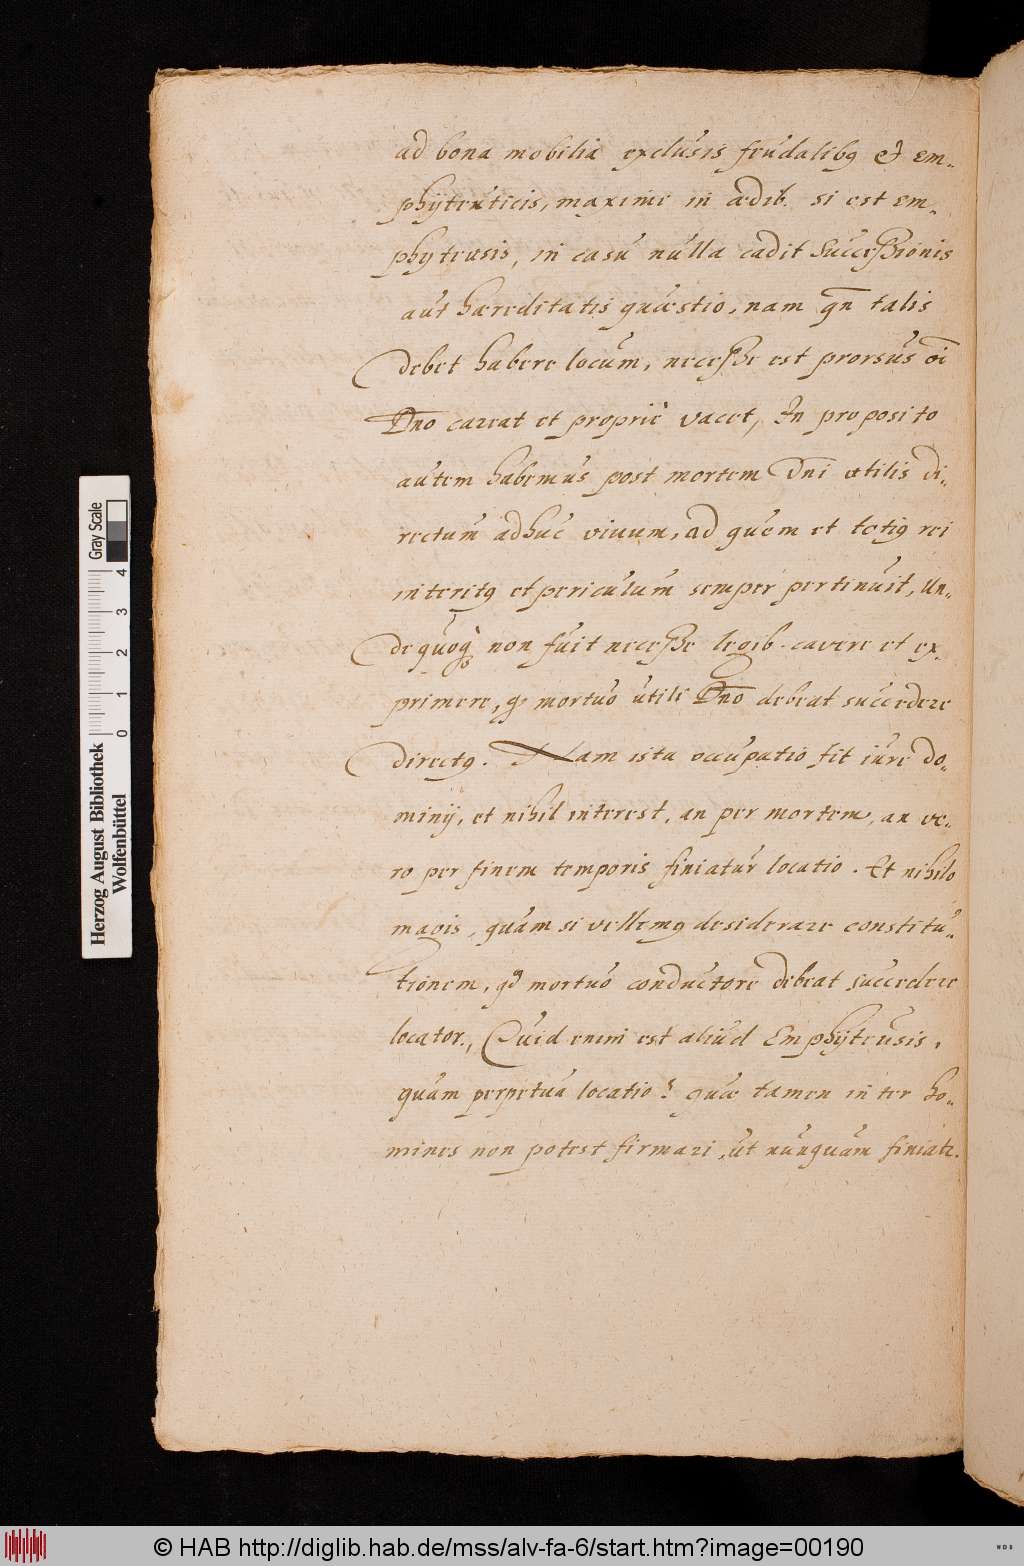 ad bona mobilia exclusis feudalibꝫ et em-
phyteuticis, maxime in ædib. si est em-
phyteusis, in casu nulla cadit Successionis
aut hæreditatis quæstio, nam qn̄ talis
debet habere locum, necesse est prorsus oī
Dn̄o careat et propriè vacet, In proposito
autem habemus post mortem Dn̄i utilis di-
rectum adhuc viuum, ad quem et totiꝰ rei
interitꝰ et periculum semper pertinuit, Un-
de quoqꝫ non fuit necesse legib. cavere et ex-
primere, qp mortuo utili Dn̄o debeat succedere
directꝰ. Nam ista occupatio fit iure do-
minij, et nihil interest, an per mortem, an ve-
ro per finem temporis finiatur locatio. Et nihilo
magis, quam si vellemꝰ desiderare constitu-
tionem, qd mortuo conductore debeat succedere
locator., Quid enim est aliud Emphyteusis,
quam perpetua locatio? quæ tamen inter ho-
mines non potest firmari, ut nunquam finiat.
Herzog August Bibliothek
Wolfenbüttel
0 1 2 3 4
Gray Scale
© HAB http://diglib.hab.de/mss/alv-fa-6/start.htm?image=00190
WDB